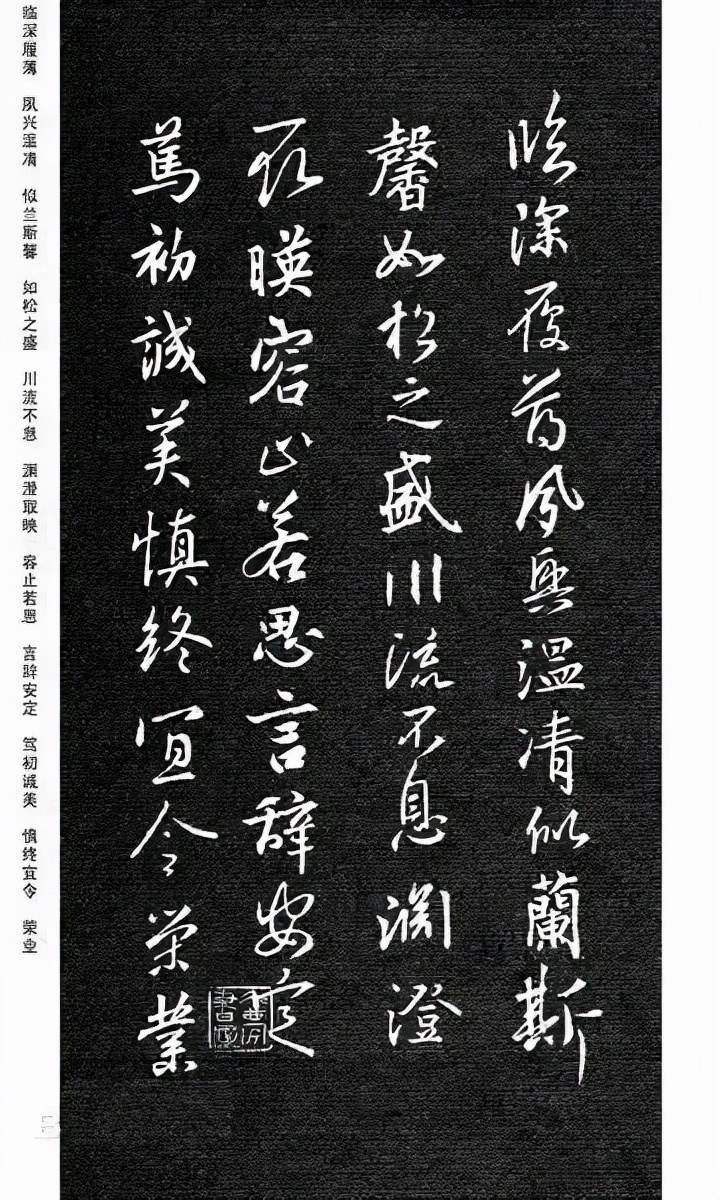 臨深履薄夙興溫凊似蘭斯
馨如松之盛川流不息淵澄
取暎容止若思言辞安定
篤初誠美慎終宜令榮業
临深履薄 夙兴温凊 似兰斯馨 如松之盛 川流不息 渊澄取映 容止若思 言辞安定 笃初诚美 慎终宜令 荣业